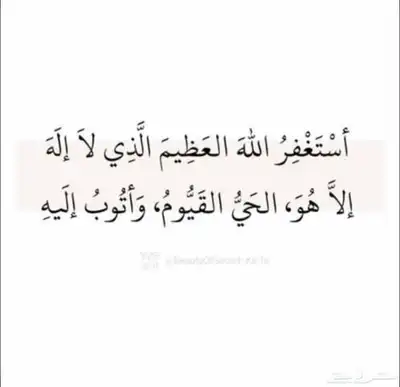 أسْتَغْفِرُ اللهَ العَظِيمَ الَّذِي لاَ إلَهَ
إلاَّ هُوَ، الحَيُّ القَيُّومُ، وَأتُوبُ إلَيهِ